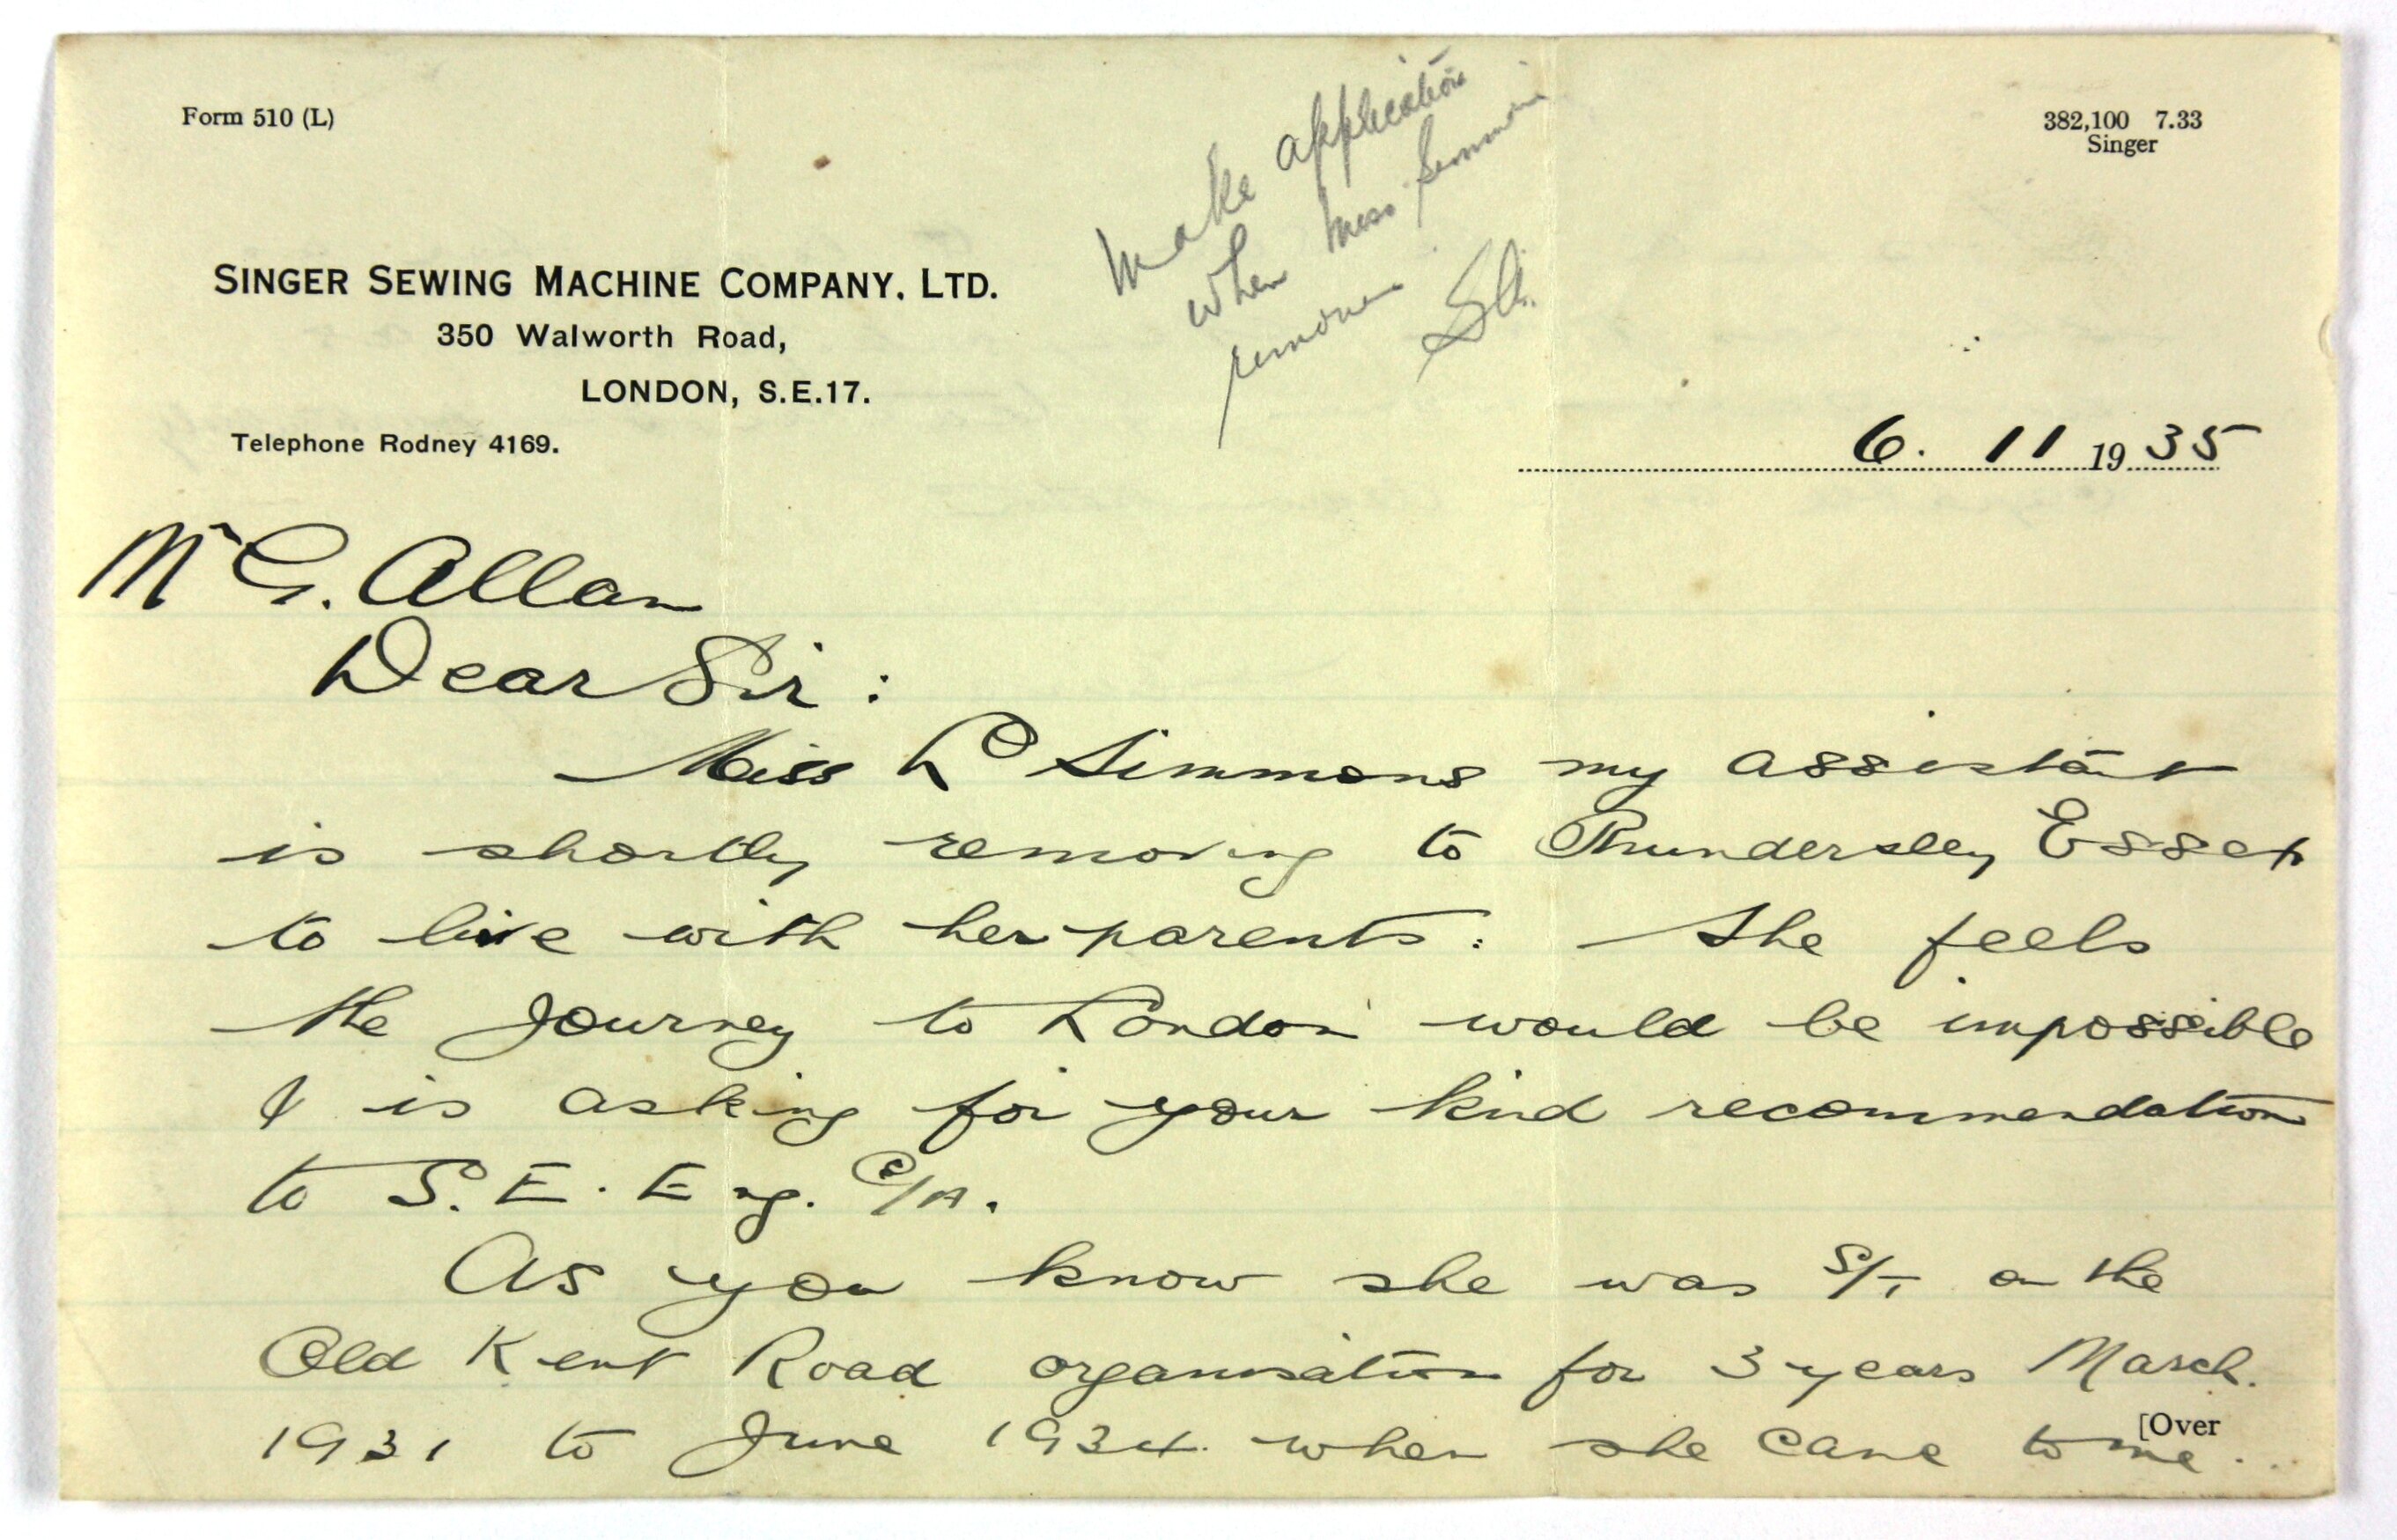 Form 510 (L)
382,100 7.33
Singer
Make application
when Miss Simmons
removes.
GA.
SINGER SEWING MACHINE COMPANY, LTD.
350 Walworth Road,
LONDON, S.E.17.
Telephone Rodney 4169.
6. 11 19 35
Mr G. Allan
Dear Sir :
Miss L Simmons my assistant
is shortly removing to Thundersley Essex
to live with her parents: She feels
the journey to London would be impossible
& is asking for your kind recommendation
to S. E. Eng. C/A.
As you know she was S/T on the
Old Kent Road organisation for 3 years March.
1931 to June 1934 when she came to me..
[Over